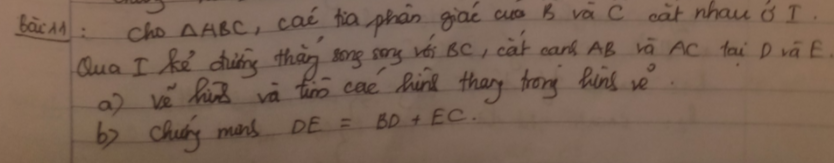 bài 11: Cho △ABC, các tia phân giác của B và C cắt nhau ở I.
Qua I kẻ đường thẳng song song với BC, cắt cạnh AB và AC tại D và E.
a) vẽ hình và tìm các hình thang trong hình vẽ.
b) chứng minh DE = BD + EC.